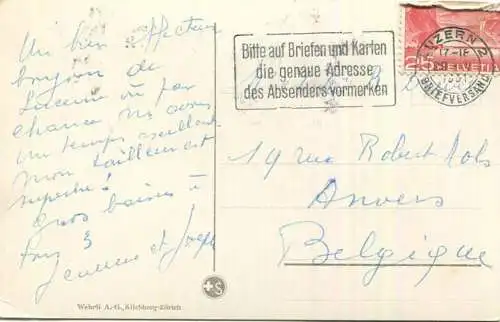 Un bien affectueux
bonjour de
Lucerne où par
chance ns avons
un temps excellent
mon tailleur est
superbe!
Gros baisers à
tous 3
Jeanne et Joseph
Bitte auf Briefen und Karten
die genaue Adresse
des Absenders vormerken
LUZERN 2
BRIEFVERSAND
HELVETIA
25
19 rue Robert Mols
Anvers
Belgique
Wehrli A.-G., Kilchberg-Zürich
S